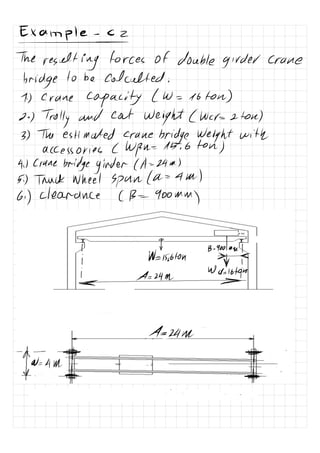 Example - c2
The resulting forces of double girder crane
bridge to be Calculted.
1) Crane Capacity (W = 16 ton)
2.) Trolly and Cat weight (Wcr= 2 ton)
3) The estimated crane bridge Weight with
accessories (WBn=
4.) Crane bridge girder (A=24m)
5.) Track Wheel Span (a = 4 m)
6.) clearance (B= 900 mm)
B=900 mm
W=15,6ton
A=24m
A=24m
a= 4m